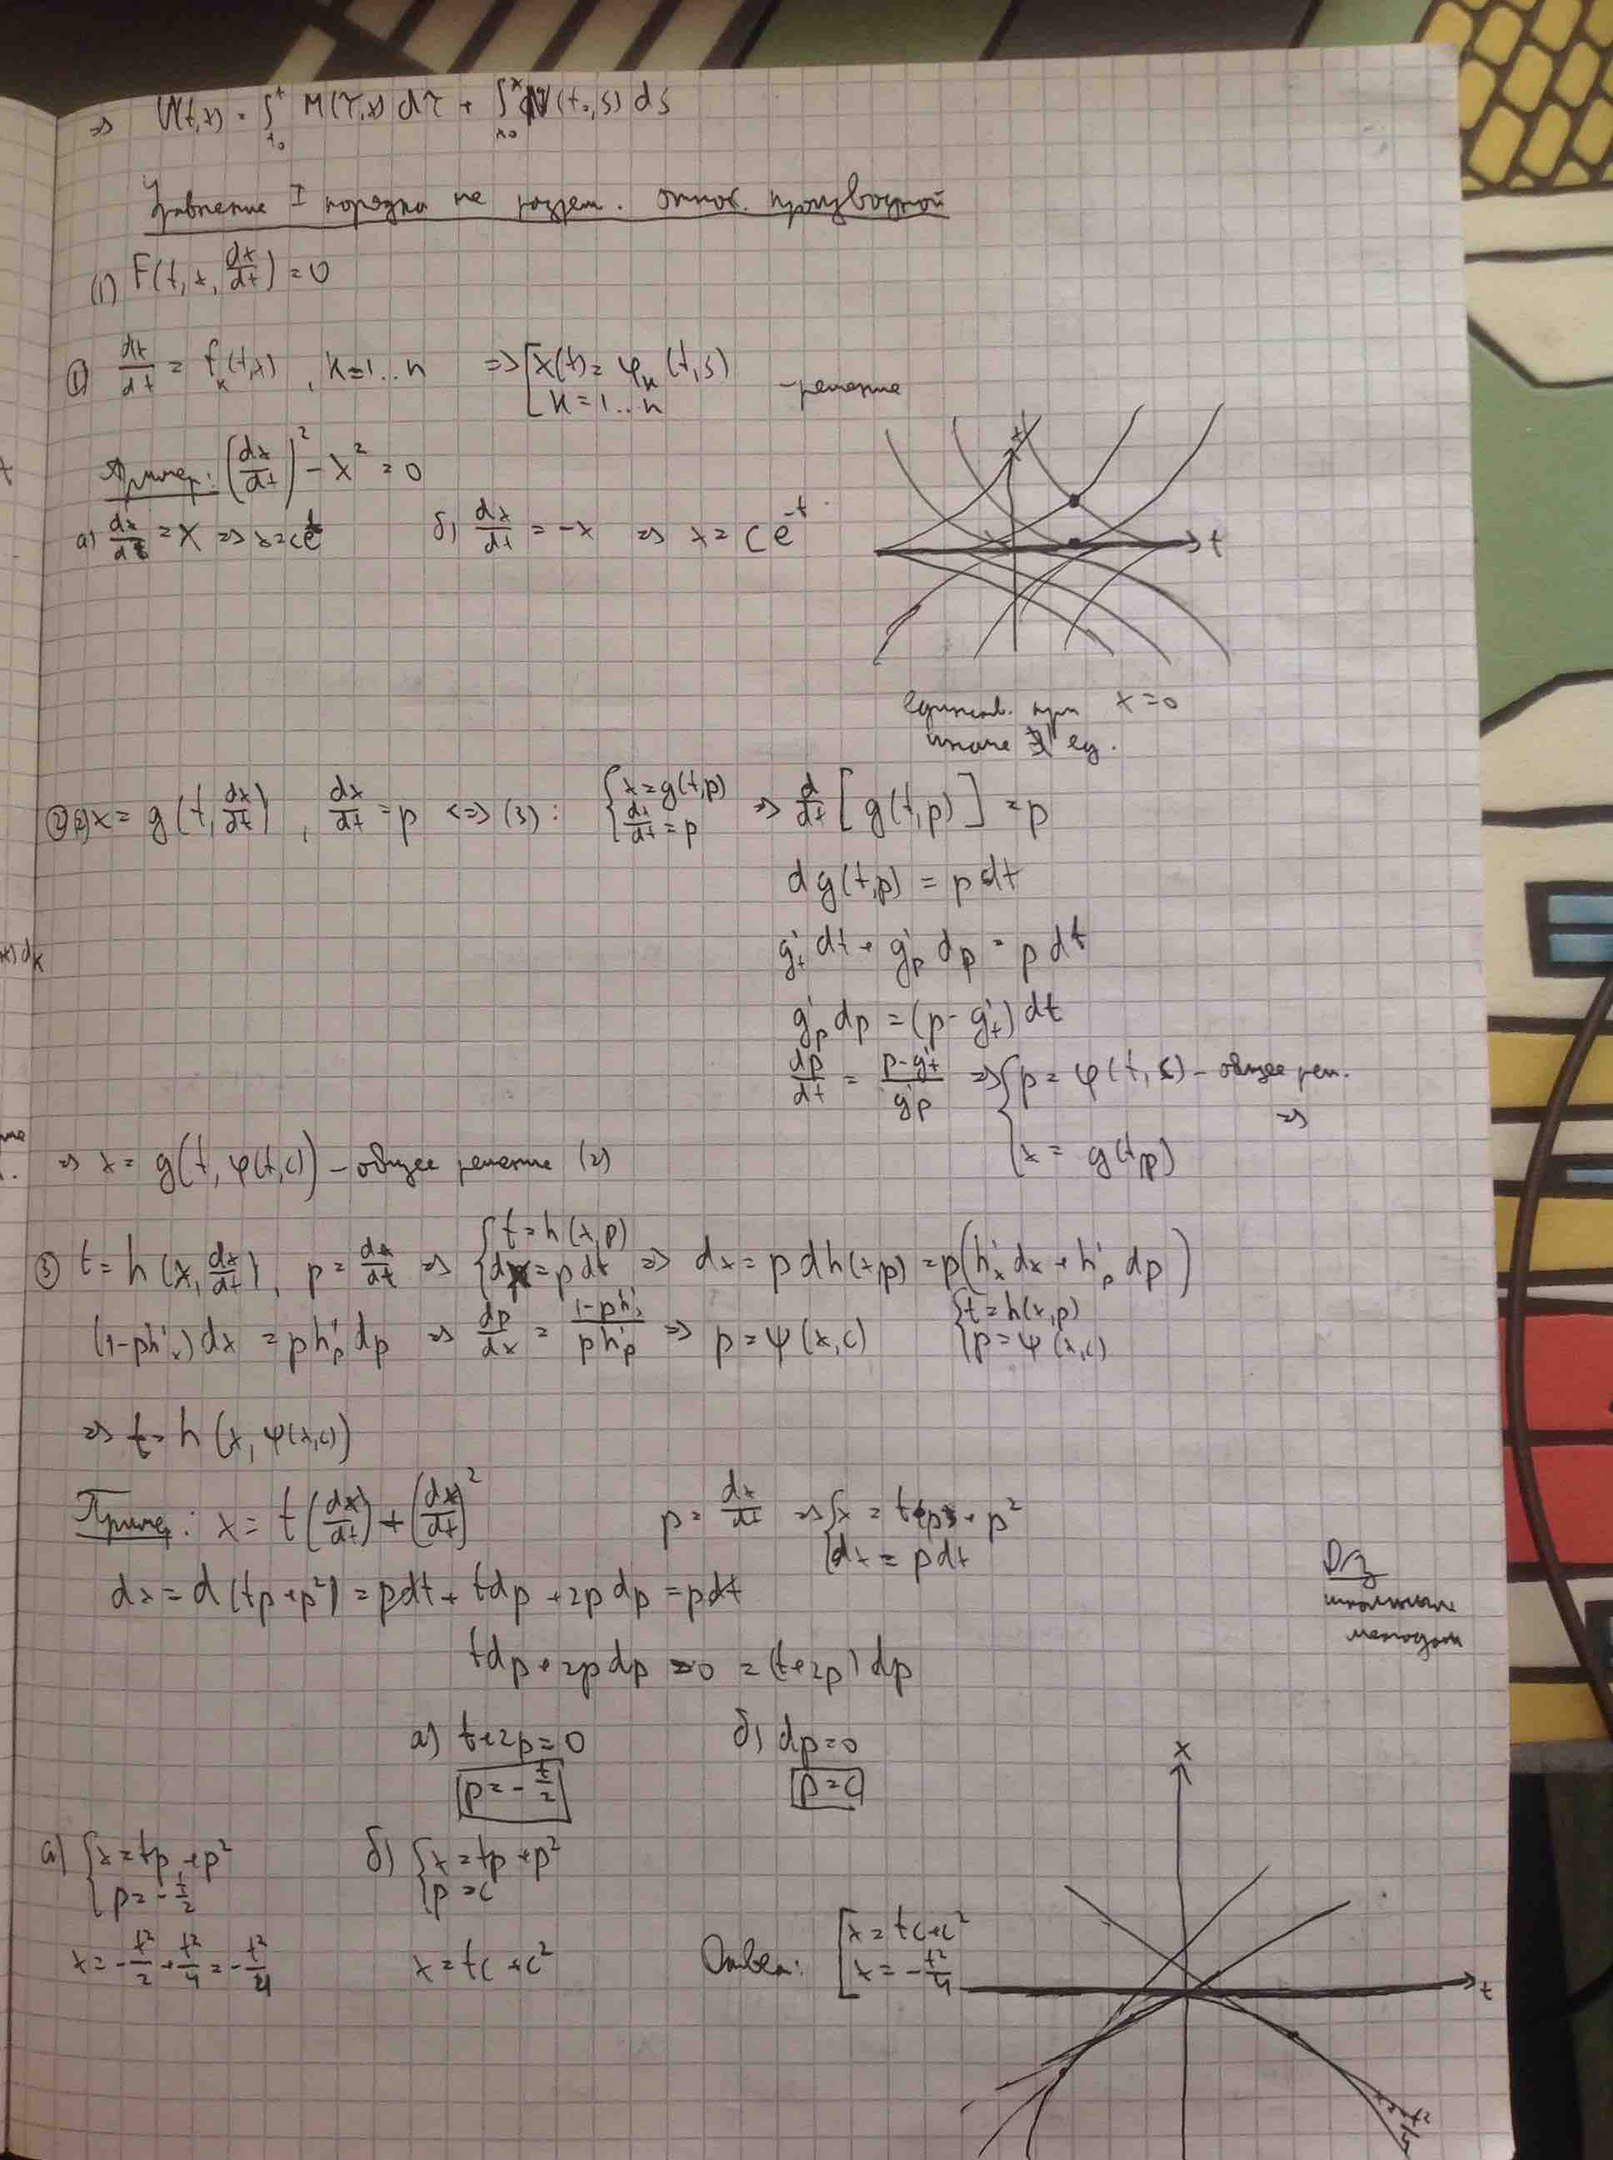 => U(t,x) = ∫_{t₀}^{t} M(τ,x) dτ + ∫_{x₀}^{x} N(t₀,s) ds
Уравнение I порядка не разреш. относ. производной
(1) F(t, x, dx/dt) = 0
① dx/dt = f_k(t,x), k=1..n => [x(t) = φ_k(t,s) k=1..n - решение
Пример: (dx/dt)² - x² = 0
x
а) dx/dt = x => x=ce^t б) dx/dt = -x => x = ce^{-t}
t
единств. при x=0
иначе ∄ ед.
② (2) x = g(t, dx/dt), dx/dt = p <=> (3): {x=g(t,p) dx/dt = p => d/dt [g(t,p)] = p
dg(t,p) = p dt
g'_t dt + g'_p dp = p dt
g'_p dp = (p - g'_t) dt
dp/dt = (p-g'_t)/g'_p => {p = φ(t,c) - общее реш. x = g(t,p) =>
=> x = g(t, φ(t,c)) - общее решение (2)
③ t = h(x, dx/dt), p = dx/dt => {t=h(x,p) dx=pdt => dx = p dh(x,p) = p(h'_x dx + h'_p dp)
(1-ph'_x)dx = ph'_p dp => dp/dx = (1-ph'_x)/(ph'_p) => p = ψ(x,c) {t=h(x,p) p=ψ(x,c)
=> t = h(x, ψ(x,c))
Пример: x = t(dx/dt) + (dx/dt)² p = dx/dt => {x = tp + p² dx = pdt
ДЗ
dx = d(tp+p²) = pdt + tdp + 2pdp = pdt
tdp + 2pdp = 0 = (t+2p)dp
а) t+2p=0 б) dp=0
p = -t/2 p=c
x
а) {x=tp+p² p=-t/2 б) {x=tp+p² p=c
x = -t²/2 + t²/4 = -t²/4 x=tc+c² Ответ: [x=tc+c² x=-t²/4
t
x=-t²/4